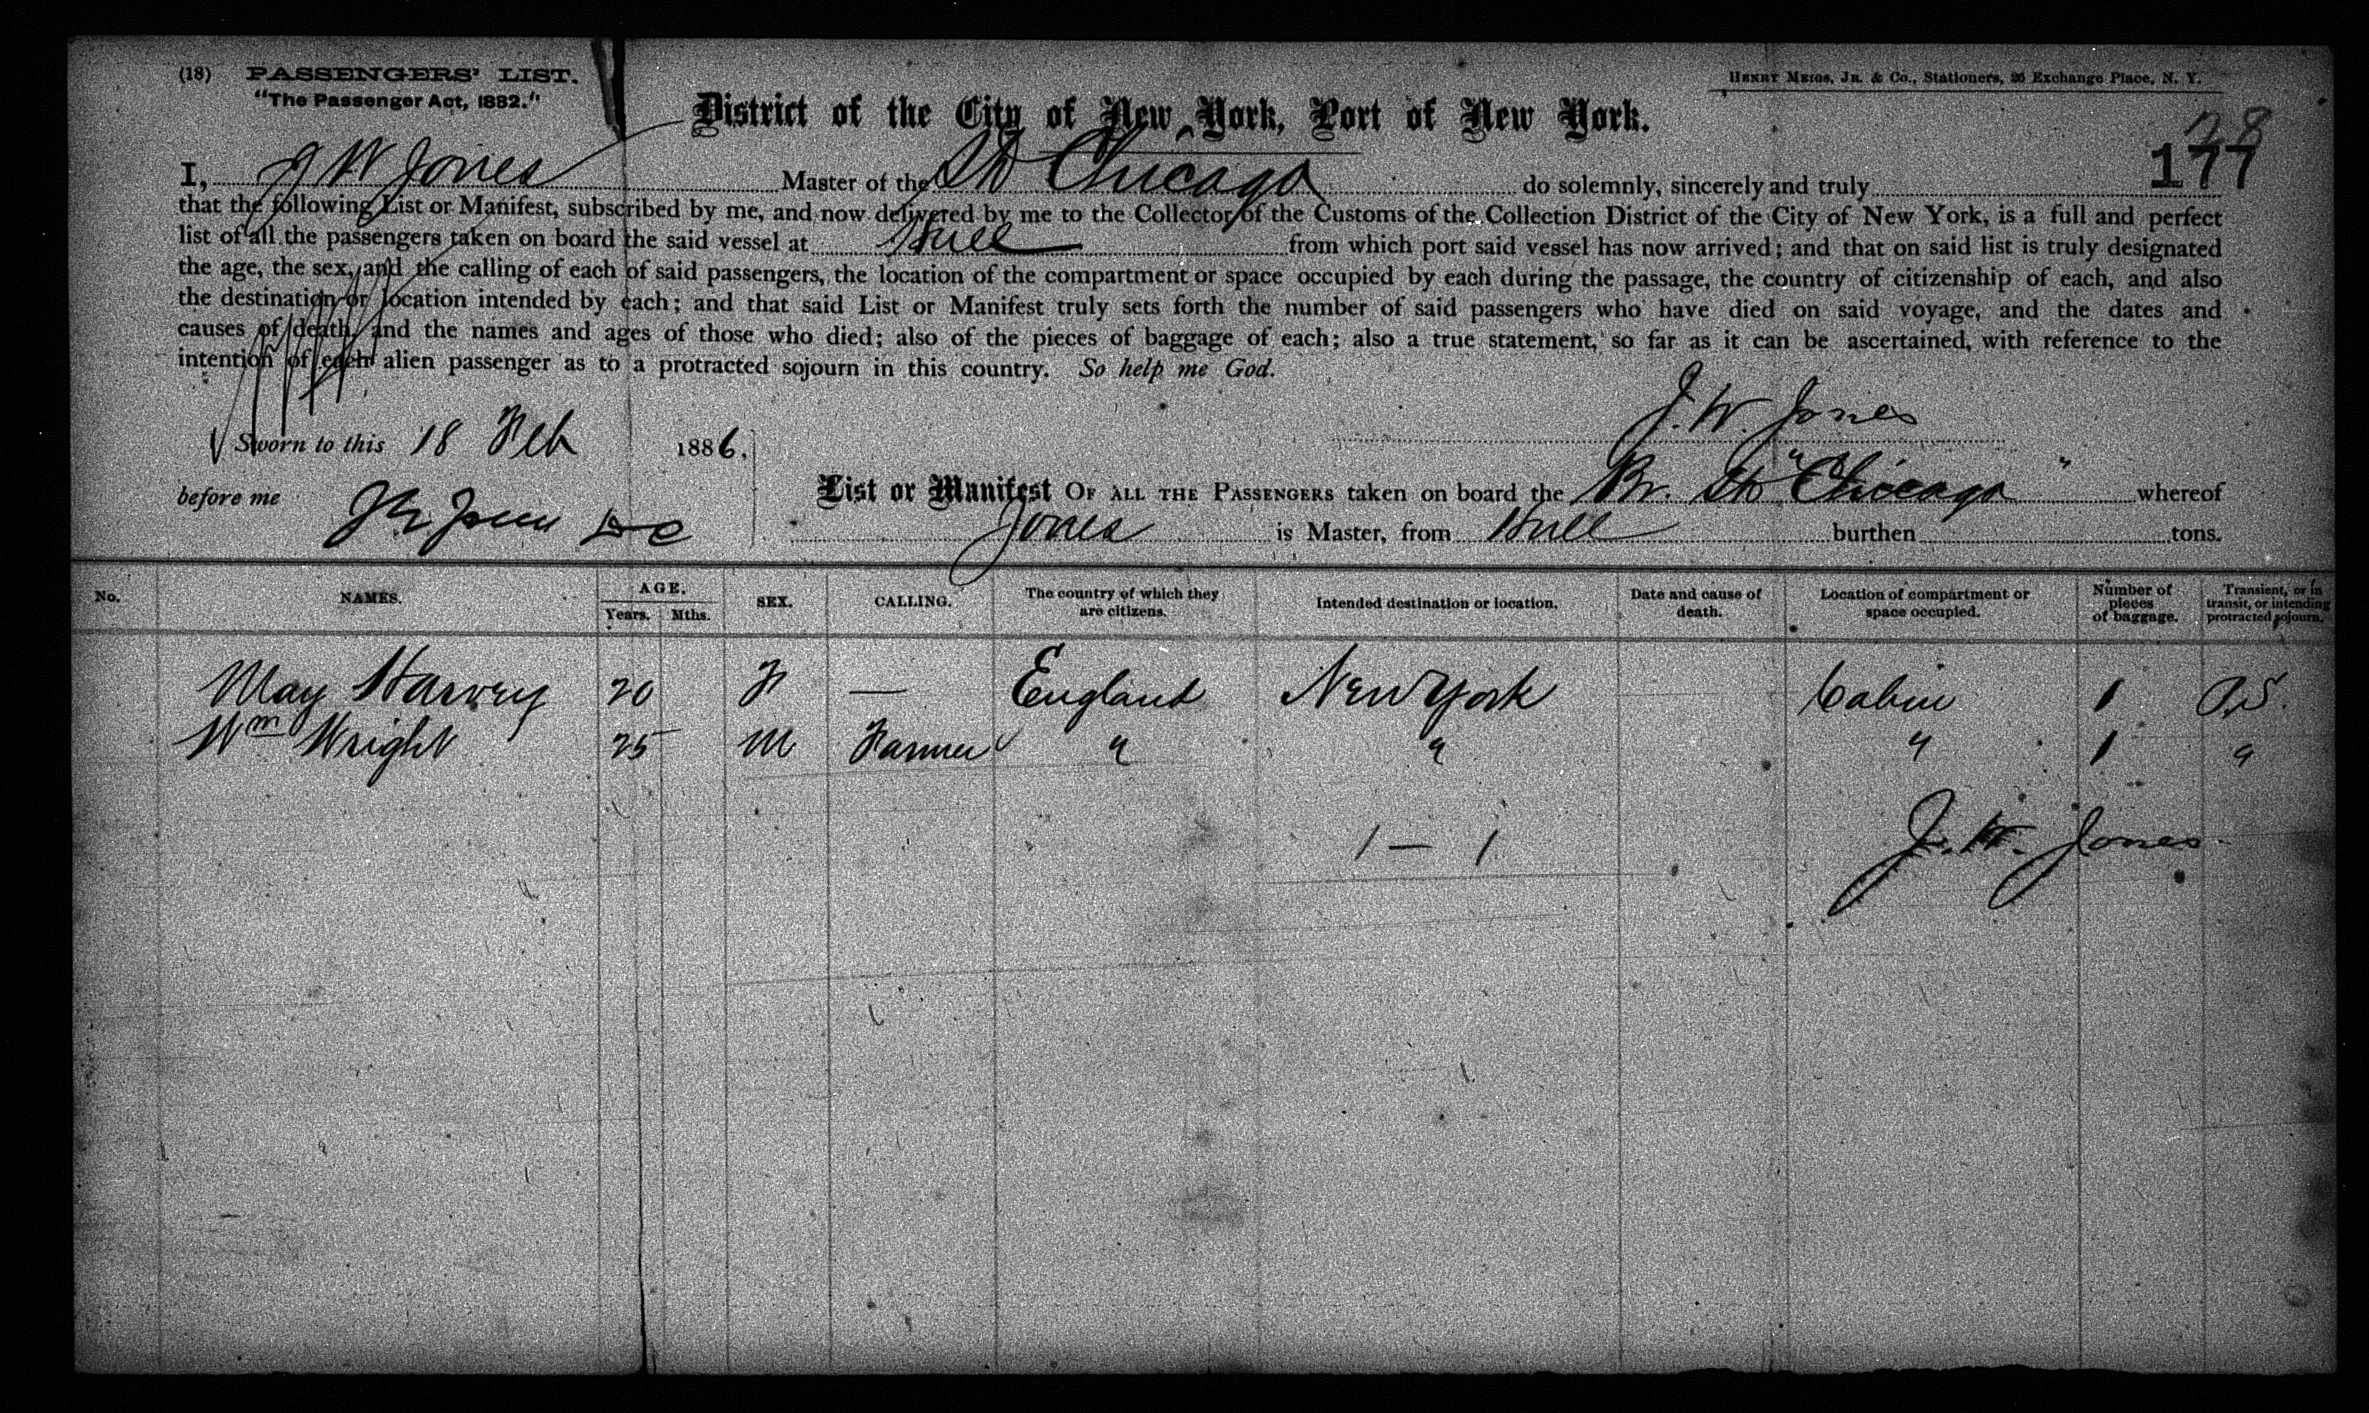 (18) PASSENGERS' LIST.
"The Passenger Act, 1882."
HENRY MEIGS, JR. & CO., Stationers, 26 Exchange Place, N. Y.
District of the City of New York, Port of New York.
28
177
I, J W Jones Master of the SS Chicago do solemnly, sincerely and truly
that the following List or Manifest, subscribed by me, and now delivered by me to the Collector of the Customs of the Collection District of the City of New York, is a full and perfect
list of all the passengers taken on board the said vessel at Hull from which port said vessel has now arrived; and that on said list is truly designated
the age, the sex, and the calling of each of said passengers, the location of the compartment or space occupied by each during the passage, the country of citizenship of each, and also
the destination or location intended by each; and that said List or Manifest truly sets forth the number of said passengers who have died on said voyage, and the dates and
causes of death, and the names and ages of those who died; also of the pieces of baggage of each; also a true statement, so far as it can be ascertained, with reference to the
intention of each alien passenger as to a protracted sojourn in this country. So help me God.
J. W. Jones
Sworn to this 18 Feb 1886.
before me
List or Manifest OF ALL THE PASSENGERS taken on board the Br. SS "Chicago" whereof
Jones is Master, from Hull burthen tons.
No. NAMES. AGE. Years. Mths. SEX. CALLING. The country of which they are citizens. Intended destination or location. Date and cause of death. Location of compartment or space occupied. Number of pieces of baggage. Transient, or in transit, or intending protracted sojourn.
May Harvey 20 F — England New York Cabin 1 P.S.
Wm Wright 25 M Farmer " " " 1 "
1 — 1
J. W. Jones